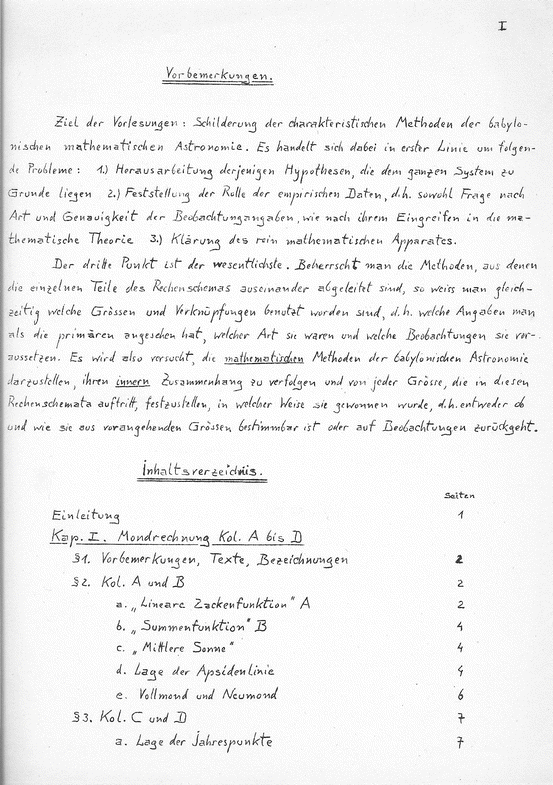 I
Vorbemerkungen.
Ziel der Vorlesungen: Schilderung der charakteristischen Methoden der babylo-
nischen mathematischen Astronomie. Es handelt sich dabei in erster Linie um folgen-
de Probleme: 1.) Herausarbeitung derjenigen Hypothesen, die dem ganzen System zu
Grunde liegen 2.) Feststellung der Rolle der empirischen Daten, d.h. sowohl Frage nach
Art und Genauigkeit der Beobachtungangaben, wie nach ihrem Eingreifen in die ma-
thematische Theorie 3.) Klärung des rein mathematischen Apparates.
Der dritte Punkt ist der wesentlichste. Beherrscht man die Methoden, aus denen
die einzelnen Teile des Rechenschemas auseinander abgeleitet sind, so weiss man gleich-
zeitig welche Grössen und Verknüpfungen benutzt worden sind, d.h. welche Angaben man
als die primären angesehen hat, welcher Art sie waren und welche Beobachtungen sie vor-
aussetzen. Es wird also versucht, die mathematischen Methoden der babylonischen Astronomie
darzustellen, ihren innern Zusammenhang zu verfolgen und von jeder Grösse, die in diesen
Rechenschemata auftritt, festzustellen, in welcher Weise sie gewonnen wurde, d.h. entweder ob
und wie sie aus vorangehenden Grössen bestimmbar ist oder auf Beobachtungen zurückgeht.
Inhaltsverzeichnis.
Seiten
Einleitung 1
Kap. I. Mondrechnung Kol. A bis D
§1. Vorbemerkungen, Texte, Bezeichnungen 2
§2. Kol. A und B 2
a. „Lineare Zackenfunktion" A 2
b. „Summenfunktion" B 4
c. „Mittlere Sonne" 4
d. Lage der Apsidenlinie 4
e. Vollmond und Neumond 6
§3. Kol. C und D 7
a. Lage der Jahrespunkte 7